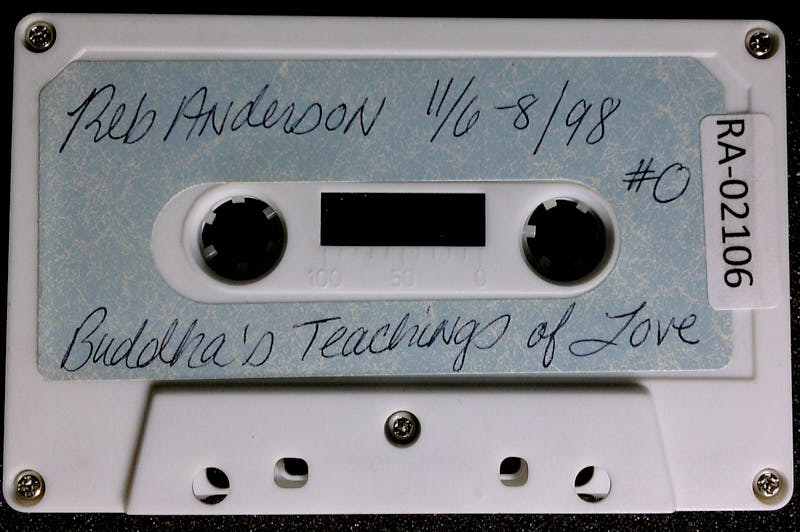 Reb Anderson 11/6-8/98
#0
RA-02106
100 50 0
Buddha's Teachings of Love